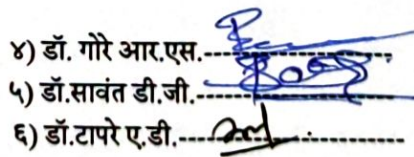 ४) डॉ. गोरे आर.एस.--------------------
५) डॉ.सावंत डी.जी.--------------------
६) डॉ.टापरे ए.डी.--------------------